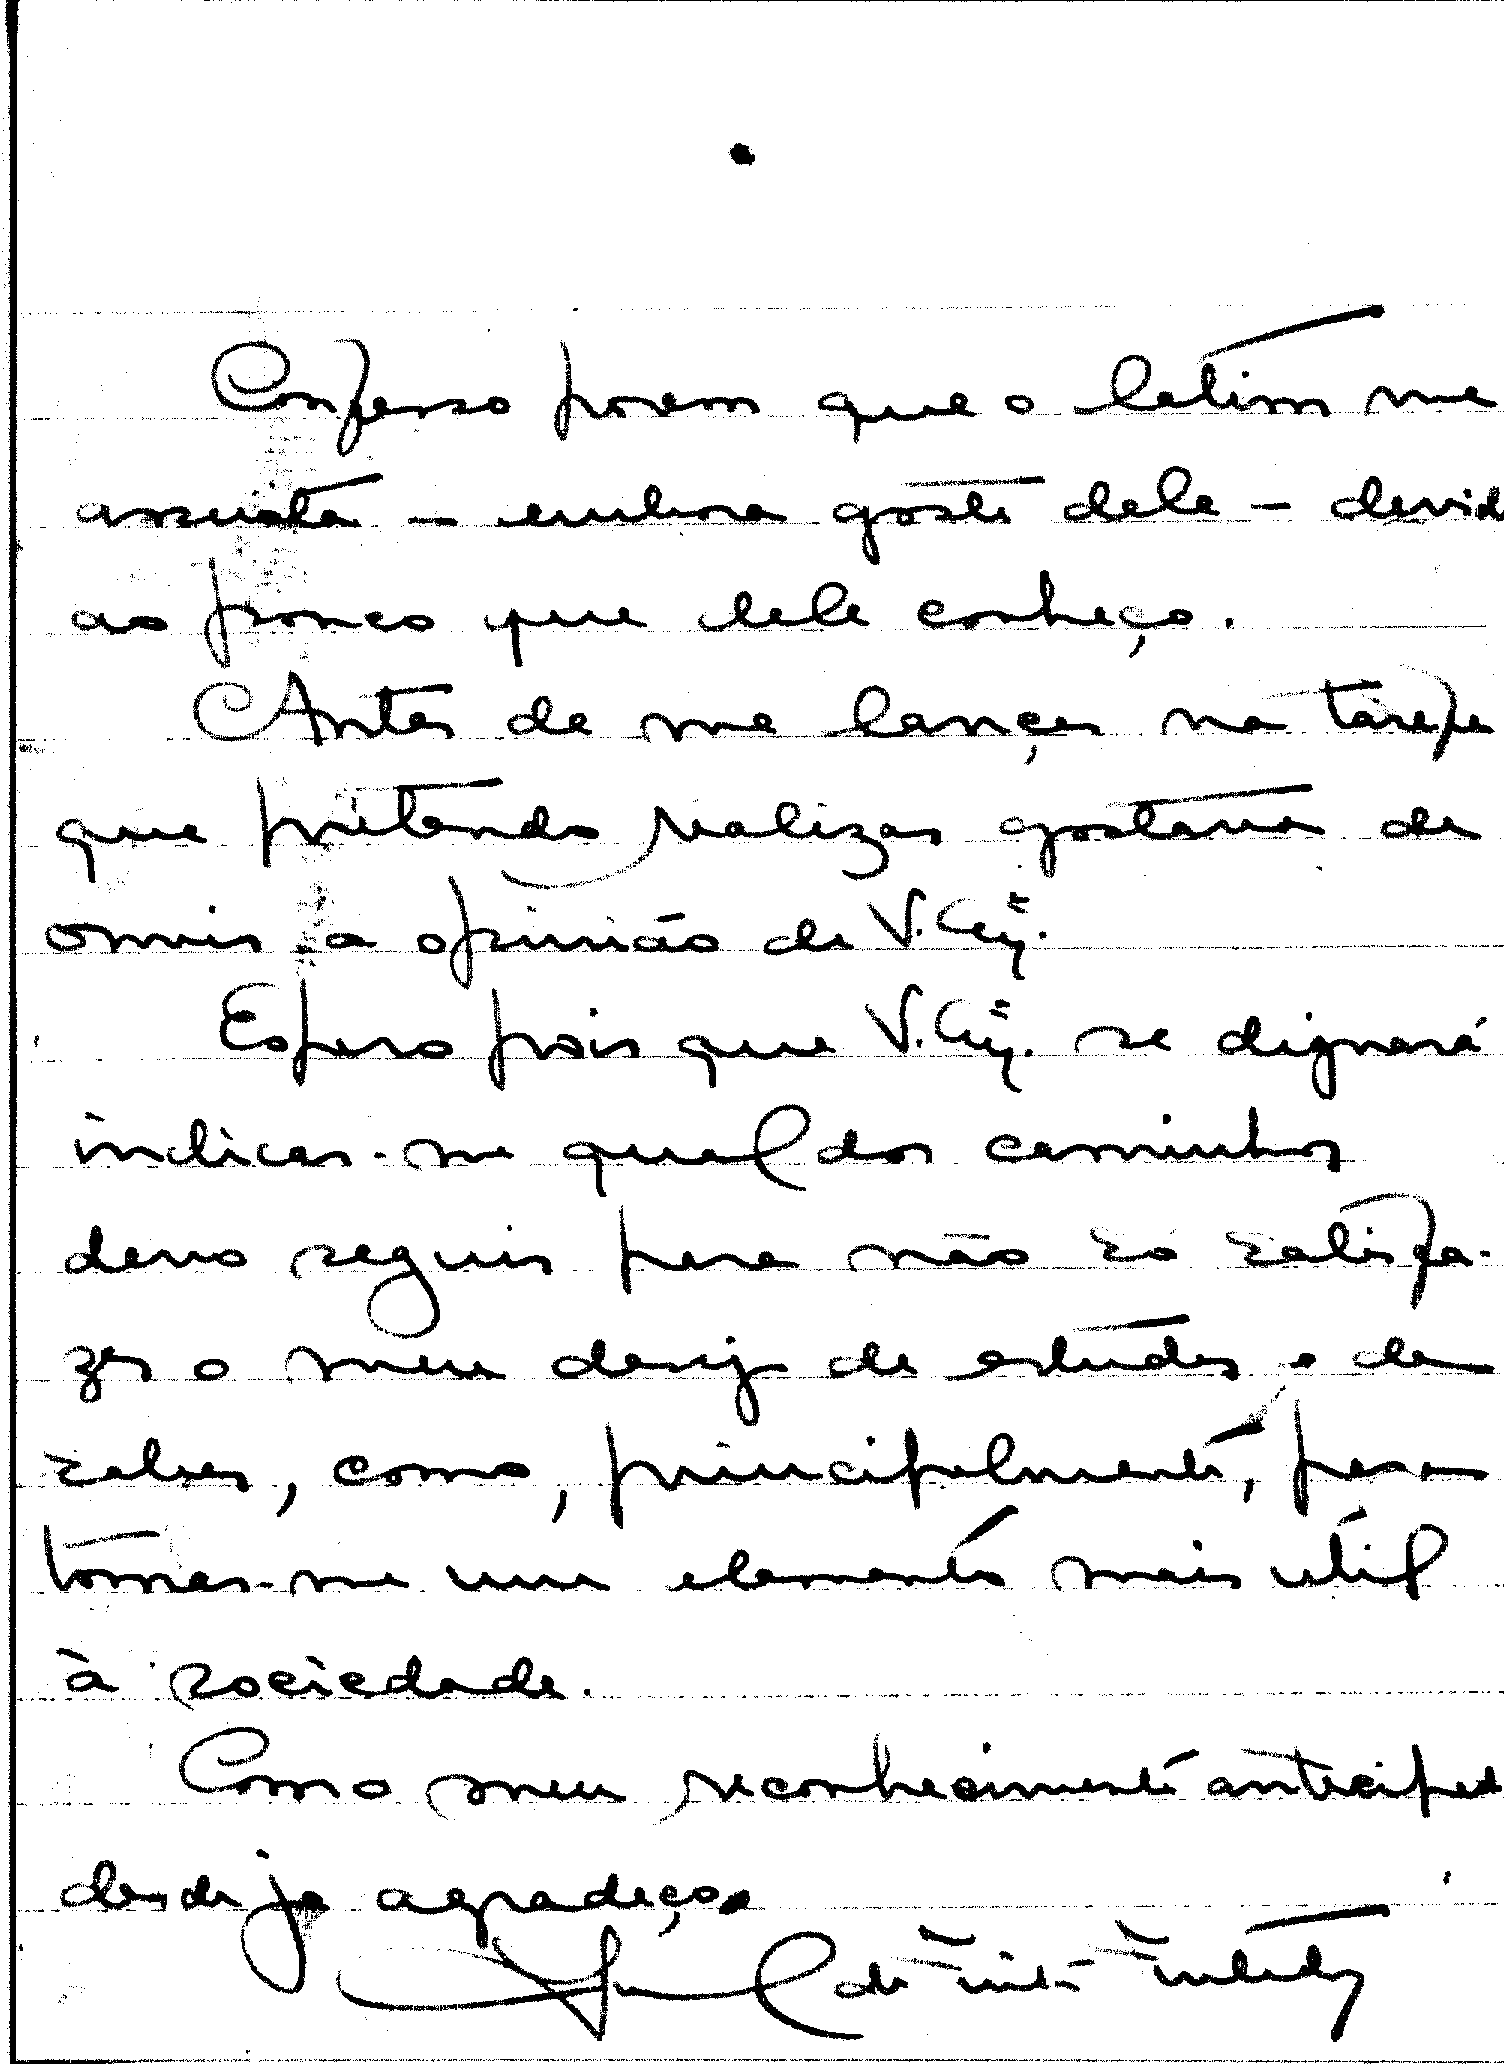 Confesso porem que o latim me
assusta – embora goste dele – devid
ao pouco que dele conheço.
Antes de me lançar na tarefa
que pretendo realizar gostaria de
ouvir a opinião de V. Exª.
Espero pois que V. Exª. se dignará
indicar-me qual dos caminhos
devo seguir para não só satisfa-
zer o meu desejo de estudar e de
saber, como, principalmente, para
tornar-me um elemento mais util
à sociedade.
Como meu reconhecimento antecipad
desde já agradeço.
de